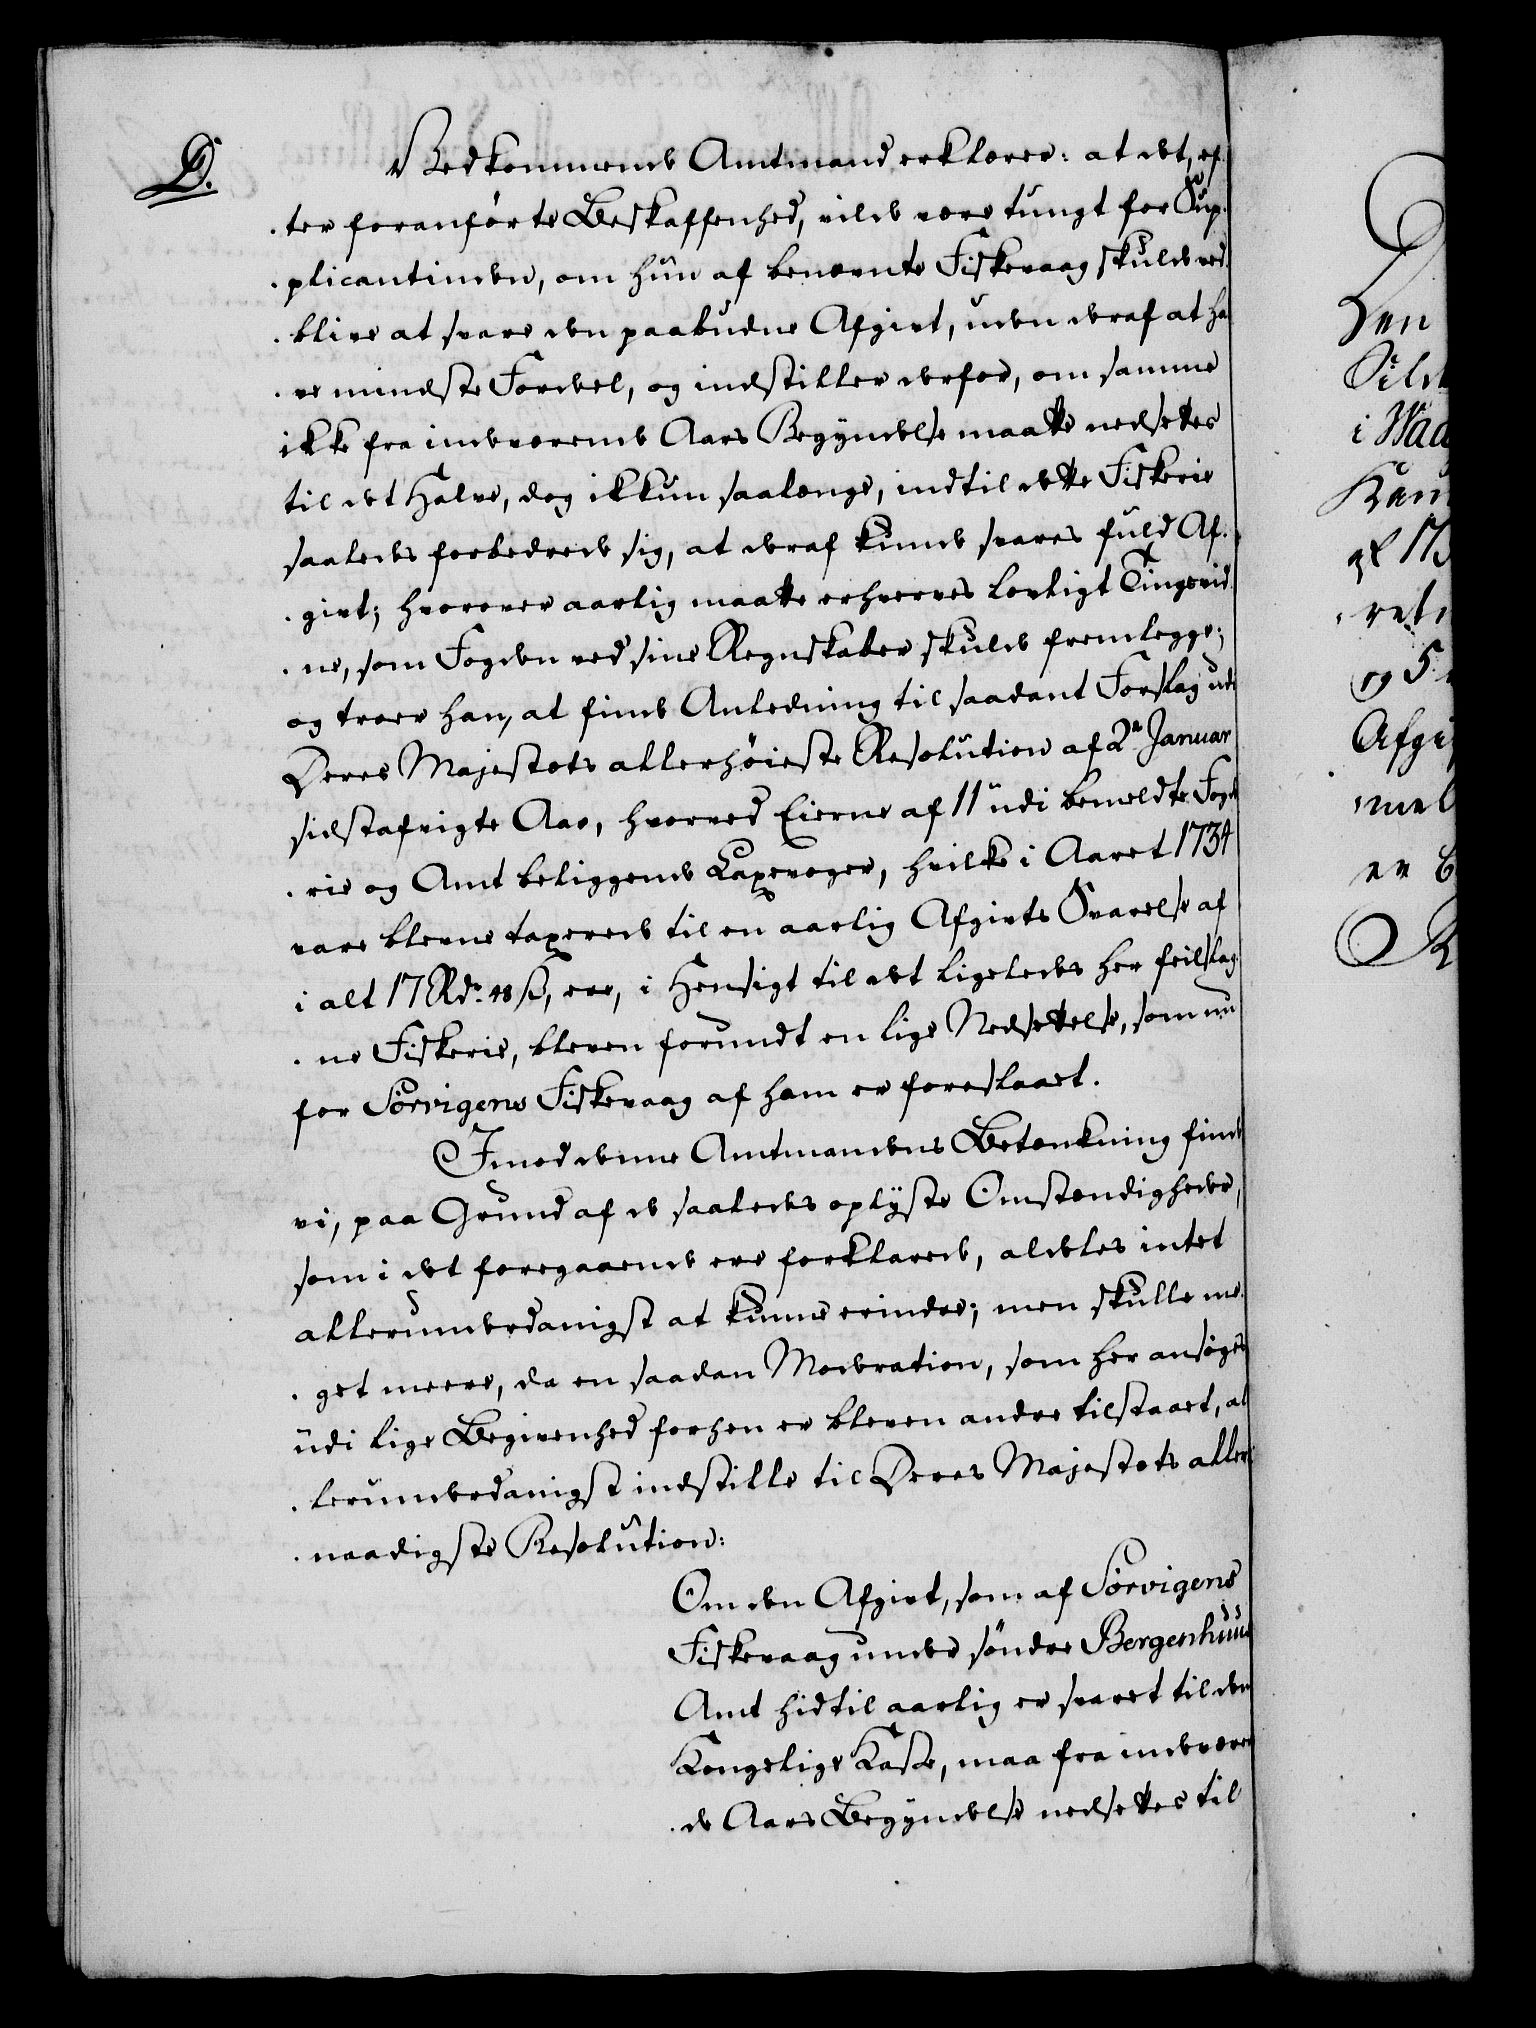 D.
Vedkommende Amtmand erklærer: at det, ef-
ter foranførte Beskaffenhed, vilde være tungt for Sup-
plicantinden, om hun af benævnte Fiskevaag skulde ved-
blive at svare den paabudne Afgivt, uden deraf at ha-
ve mindste Fordeel, og indstiller derfor, om samme
ikke fra indeværende Aars Begyndelse maatte nedsettes
til det Halve, dog ikkun saalænge, indtil dette Fiskerie
saaledes forbedrede sig, at deraf kunde svares fuld Af-
givt; hvorover aarlig maatte erhverves lovligt Tingsvid-
ne, som Fogden ved sine Regnskaber skulde fremlegge;
og troer han, at finde Anledning til saadant Forslag udi
Deres Majestæts allerhøieste Resolution af 2de Januar
sidstafvigte Aar, hvorved Eierne af 11 udi bemeldte Fogde-
rie og Amt beliggende Laxevoger, hvilke i Aaret 1734
vare blevne taxerede til en aarlig Afgivts Svarelse af
i alt 17 Rdr. 48 s, ere, i Hensigt til det ligeledes her feilslag-
ne Fiskerie, bleven forundt en lige Nedsettelse, som nu
for Sørvigens Fiskevaag af ham er foreslaaet.
Imod denne Amtmandens Betænkning finde
vi, paa Grund af de saaledes oplyste Omstændigheder,
som i det foregaaende ere forklarede, aldeles intet
allerunderdanigst at kunne erindre; men skulle me-
get meere, da en saadan Moderation, som her ansøges
udi lige Begivenhed forhen er bleven andre tilstaaet, al-
lerunderdanigst indstille til Deres Majestæts aller-
naadigste Resolution:
Om den Afgivt, som af Sørvigens
Fiskevaag under søndre Bergenhuus
Amt hidtil aarlig er svaret til den
Kongelige Kasse, maa fra indeværen-
de Aars Begyndelse nedsettes til
Den
i Waa
og 5
Afgi